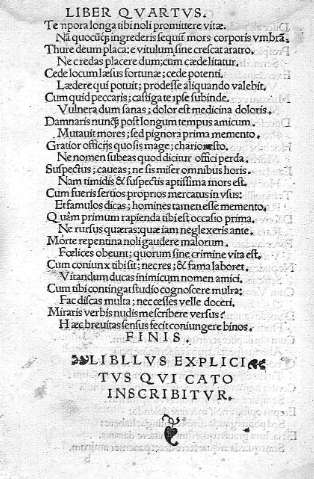 LIBER QVARTVS.
Tempora longa tibi noli promittere vitæ.
Nā quocūq; ingrederis sequif mors corporis vmbrā.
Thure deum placa; e vitulum, sine crescat aratro.
Ne credas placere dum; cum cæde litatur.
Cede locum læsus fortunæ; cede potenti.
Lædere qui potuit; prodesse aliquando valebit.
Cum quid peccaris; castiga te ipse subinde.
Vulnera dum sanas; dolor est medicina doloris.
Damnaris nunq̄; post longum tempus amicum.
Mutauit mores; sed pignora prima memento.
Gratior officijs quo sis mage; charior esto.
Ne nomen subeas quod dicitur offici perda.
Suspectus; caueas; ne sis miser omnibus horis.
Nam timidis & suspectis aptissima mors est.
Cum fueris sertios proprios mercatus in vsus:
Et famulos dicas; homines tamen esse memento.
Q uàm primum rapienda tibi est occasio prima.
Ne rursus quæras; quæ iam neglexeris ante.
Morte repentina noli gaudere malorum.
Fœlices obeunt; quorum sine crimine vita est.
Cum coniunx tibi sit; nec res; & fama laboret.
Vitandum ducas inimicum nomen amici.
Cum tibi contingat studio cognoscere multa:
Fac discas multa; nec cesses velle doceri.
Miraris verbis nudis me scribere versus?
Hæc breuitas sensus fecit coniungere binos.
FINIS.
LIBLLVS EXPLICI
TVS QVI CATO
INSCRIBITVR.